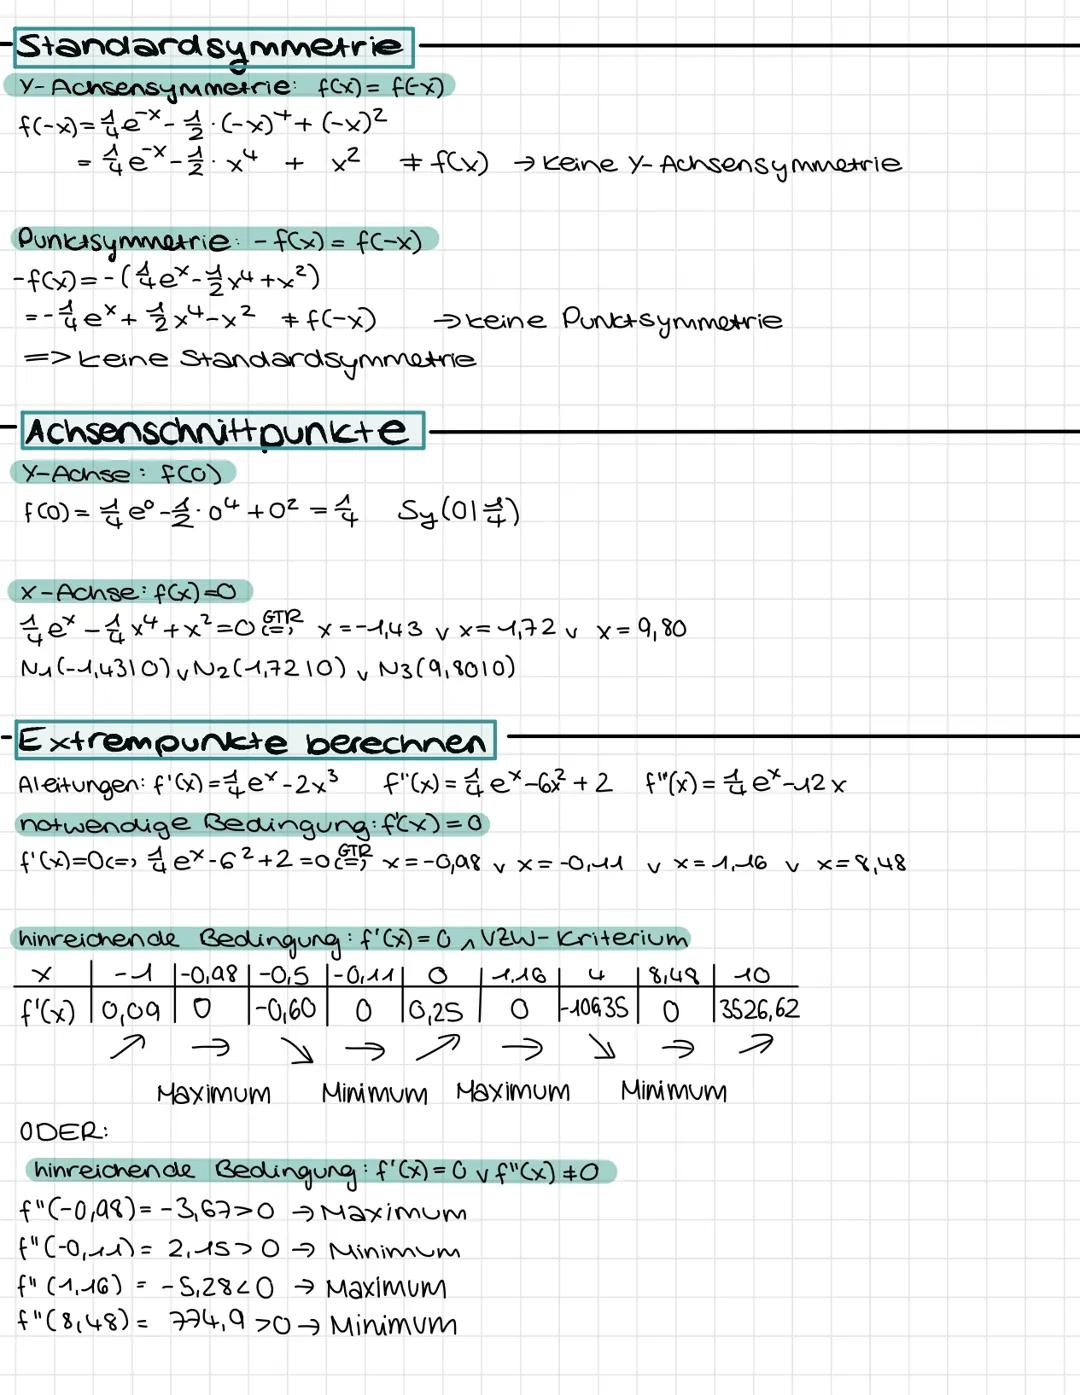 Standardsymmetrie
Y-Achsensymmetrie: f(x) = f(-x)
f(-x) = 1/4 e^-x - 1/2 · (-x)^4 + (-x)²
= 1/4 e^-x - 1/2 · x⁴ + x² ≠ f(x) → keine Y-Achsensymmetrie
Punktsymmetrie: - f(x) = f(-x)
-f(x) = - (1/4 e^x - 1/2 x⁴ + x²)
= - 1/4 e^x + 1/2 x⁴ - x² ≠ f(-x) → keine Punktsymmetrie
=> keine Standardsymmetrie
Achsenschnittpunkte
Y-Achse: f(0)
f(0) = 1/4 e⁰ - 1/2 · 0⁴ + 0² = 1/4 Sy(0|1/4)
X-Achse: f(x)=0
1/4 e^x - 1/4 x⁴ + x² = 0 <=> GTR x = -1,43 ∨ x = 1,72 ∨ x = 9,80
N1(-1,43|0) ∨ N2(1,72|0) ∨ N3(9,80|0)
Extrempunkte berechnen
Aleitungen: f'(x) = 1/4 e^x - 2x³ f''(x) = 1/4 e^x - 6x² + 2 f'''(x) = 1/4 e^x - 12x
notwendige Bedingung: f'(x) = 0
f'(x)=0 <=> 1/4 e^x - 6² + 2 = 0 <=> GTR x = -0,98 ∨ x = -0,11 ∨ x = 1,16 ∨ x = 8,48
hinreichende Bedingung: f'(x) = 0 ∧ VZW-Kriterium
x | -1 | -0,98 | -0,5 | -0,11 | 0 | 1,16 | 4 | 8,48 | 10
f'(x) | 0,09 | 0 | -0,60 | 0 | 0,25 | 0 | -106,35 | 0 | 3526,62
↗ → ↘ → ↗ → ↘ → ↗
Maximum Minimum Maximum Minimum
ODER:
hinreichende Bedingung: f'(x) = 0 ∨ f''(x) ≠ 0
f''(-0,98) = -3,67 > 0 → Maximum
f''(-0,11) = 2,15 > 0 → Minimum
f''(1,16) = -5,28 < 0 → Maximum
f''(8,48) = 774,9 > 0 → Minimum